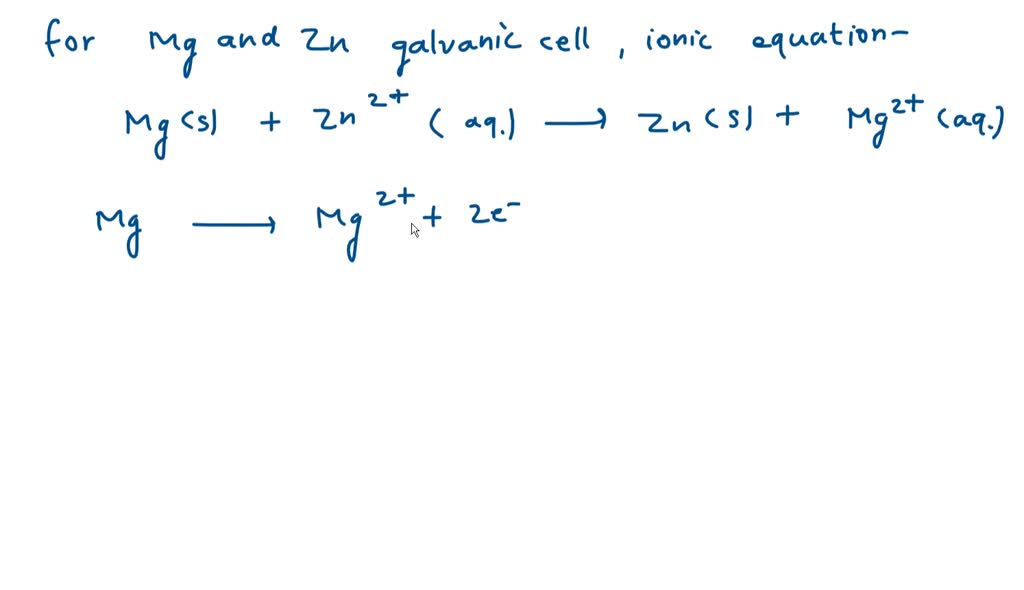 for Mg and Zn galvanic cell, ionic equation-
Mg(s) + Zn²⁺ (aq.) ⟶ Zn(s) + Mg²⁺ (aq.)
Mg ⟶ Mg²⁺ + 2e⁻